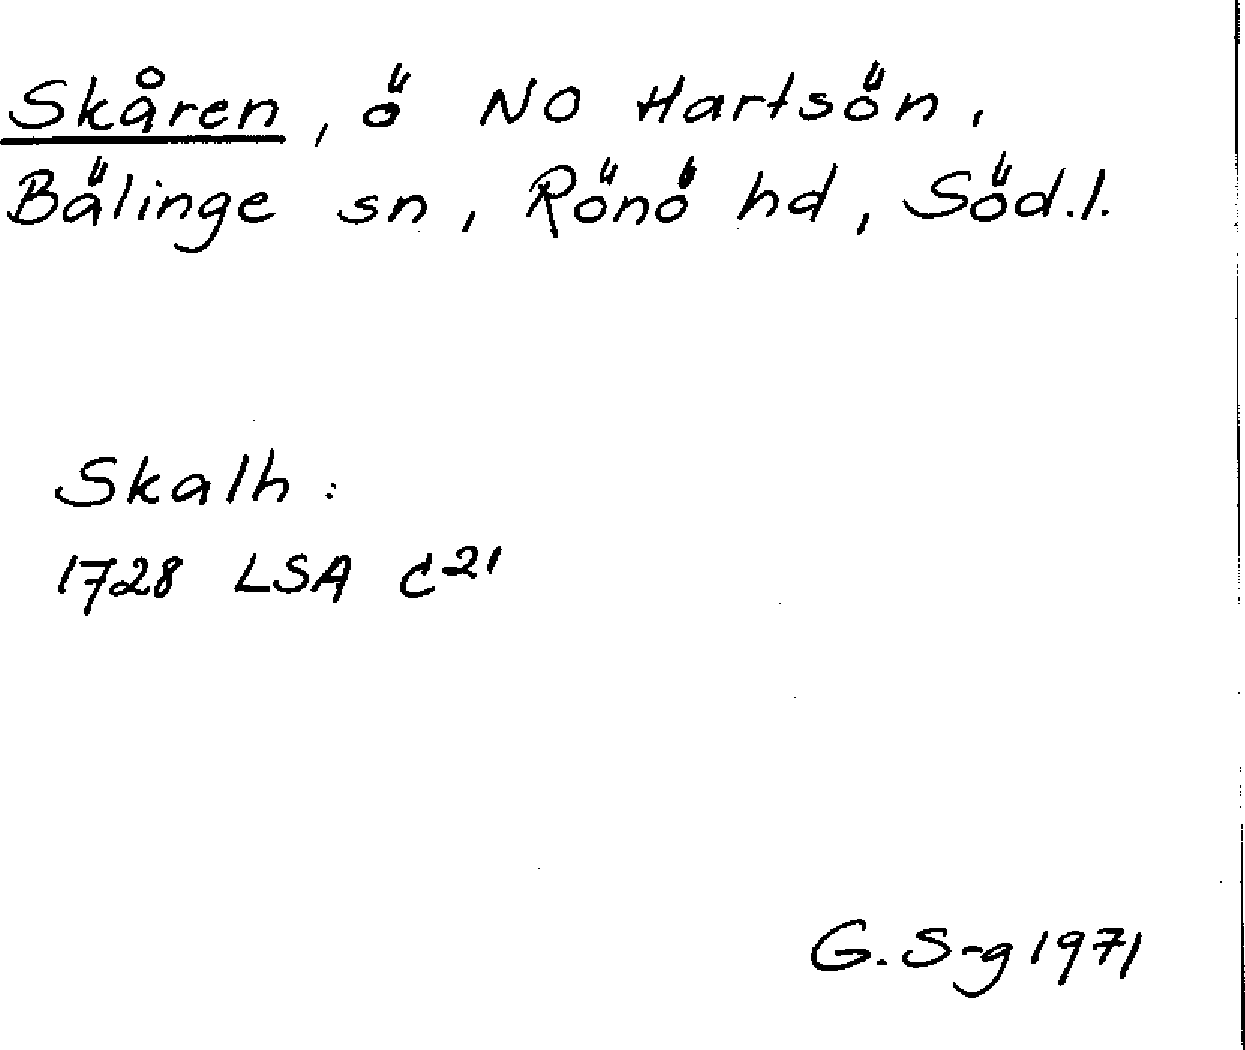 Skåren, ö NO Hartsön,
Bälinge sn, Rönö hd, Söd.l.
Skalh:
1728 LSA C21
G. S-g 1971